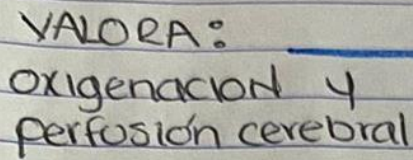 VALORA:
oxigenacion y
perfusión cerebral